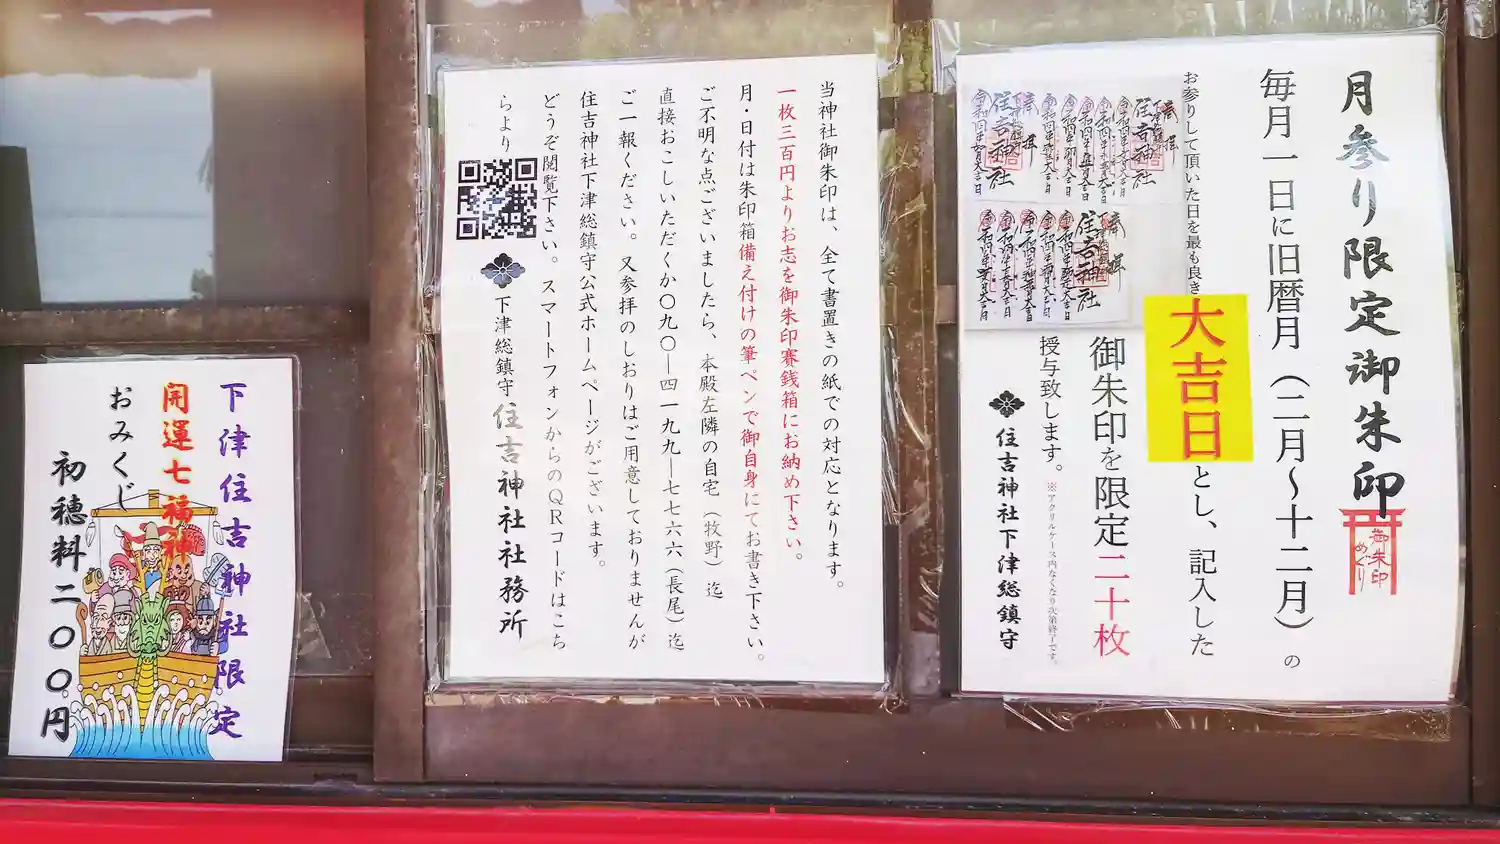 月参り限定御朱印
御朱印
めぐり
毎月一日に旧暦月（二月～十二月）の
お参りして頂いた日を最も良き大吉日とし、記入した
御朱印を限定二十枚
授与致します。※アクリルケース内なくなり次第終了です。
住吉神社下津総鎮守
奉拝
住吉神社
奉拝
住吉神社
当神社御朱印は、全て書置きの紙での対応となります。
一枚三百円よりお志を御朱印賽銭箱にお納め下さい。
月・日付は朱印箱備え付けの筆ペンで御自身にてお書き下さい。
ご不明な点ございましたら、本殿左隣の自宅（牧野）迄
直接おこしいただくか〇九〇―四一九九―七七六六（長尾）迄
ご一報ください。又参拝のしおりはご用意しておりませんが
住吉神社下津総鎮守公式ホームページがございます。
どうぞ閲覧下さい。スマートフォンからのQRコードはこち
らより
下津総鎮守住吉神社社務所
下津住吉神社限定
開運七福神
おみくじ
初穂料二〇〇円